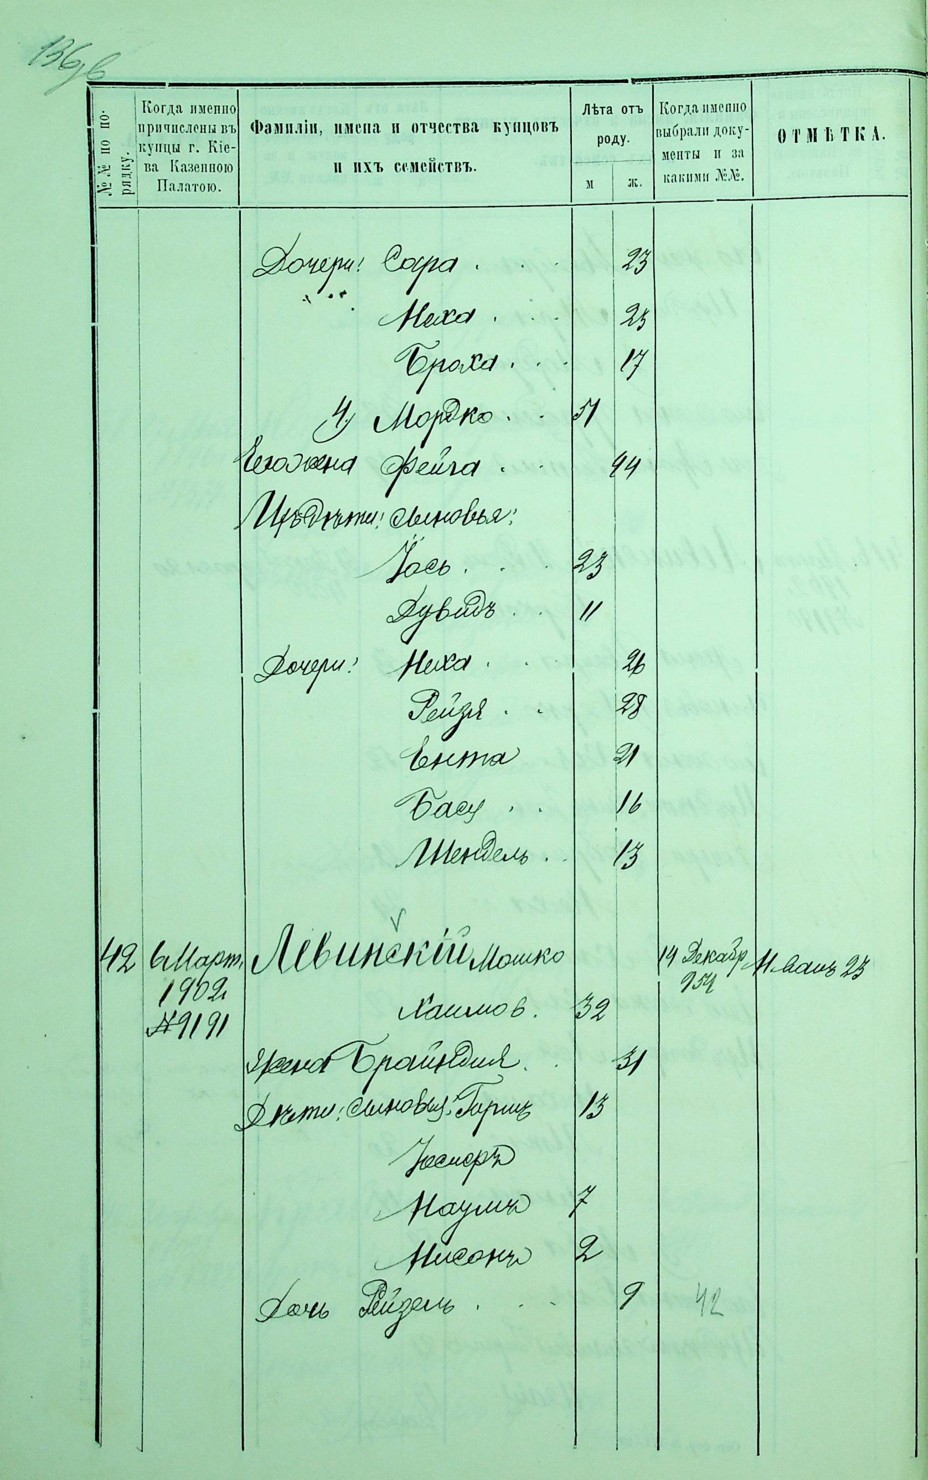 136
№№ по порядку.
Когда именно причислены въ купцы г. Кіева Казенною Палатою.
Фамиліи, имена и отчества купцовъ и ихъ семействъ.
Лѣта отъ роду.
м
ж.
Когда именно выбрали документы и за какими №№.
ОТМѢТКА.
Дочери: Сора . 23
Неха . . 23
Броха . . . 17
4) Мордко . . 51
Его жена Фейга . . 44
Ихъ дѣти: сыновья:
Іось . . . 23
Дувидъ . . 11
Дочери: Неха . . 26
Рейзя . . 28
Ента 21
Бася . . 16
Шендель . . 13
42 6 Март. Левинскій Мошко 14 Декабр
1902 254
№9191 Хаимов. 32
Жена Брайндля . . 31
Дѣти: сыновья: Гершъ 13
Іосифъ
Наумъ 7
Нисонъ 2
Дочь Рейзель . . . 9 42